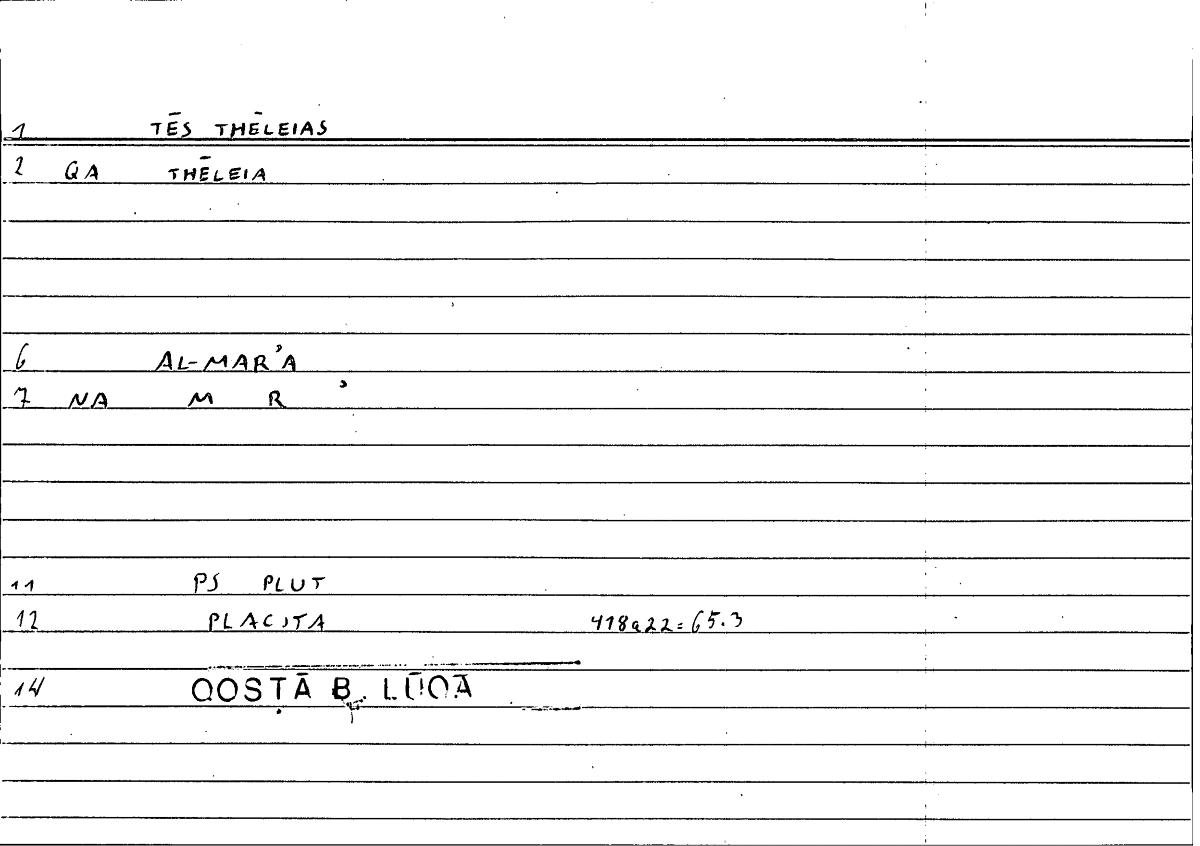 1 TĒS THĒLEIAS
2 QA THĒLEIA
6 AL-MARʾA
7 NA M R ʾ
11 PS PLUT
12 PLACITA 418a22=65.3
14 QOSṬĀ B. LŪQĀ